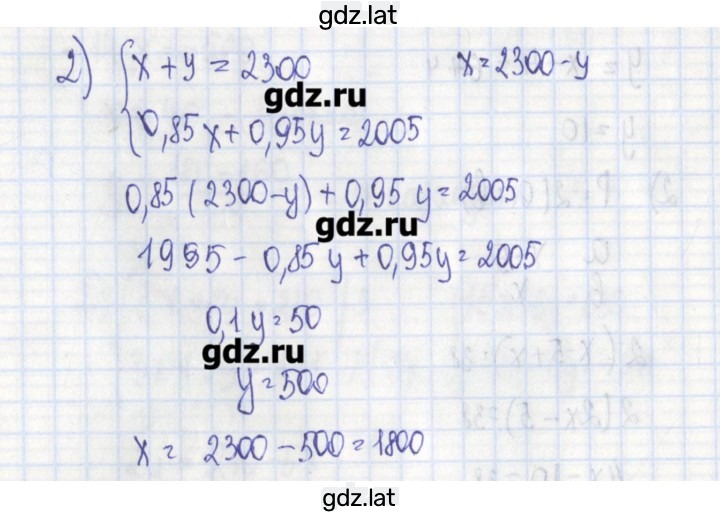 gdz.lat
2) { x + y = 2300 x = 2300 - y
gdz.ru
0,85 x + 0,95 y = 2005
0,85 (2300 - y) + 0,95 y = 2005
gdz.ru
1955 - 0,85 y + 0,95 y = 2005
0,1 y = 50
gdz.ru
y = 500
x = 2300 - 500 = 1800
gdz.lat